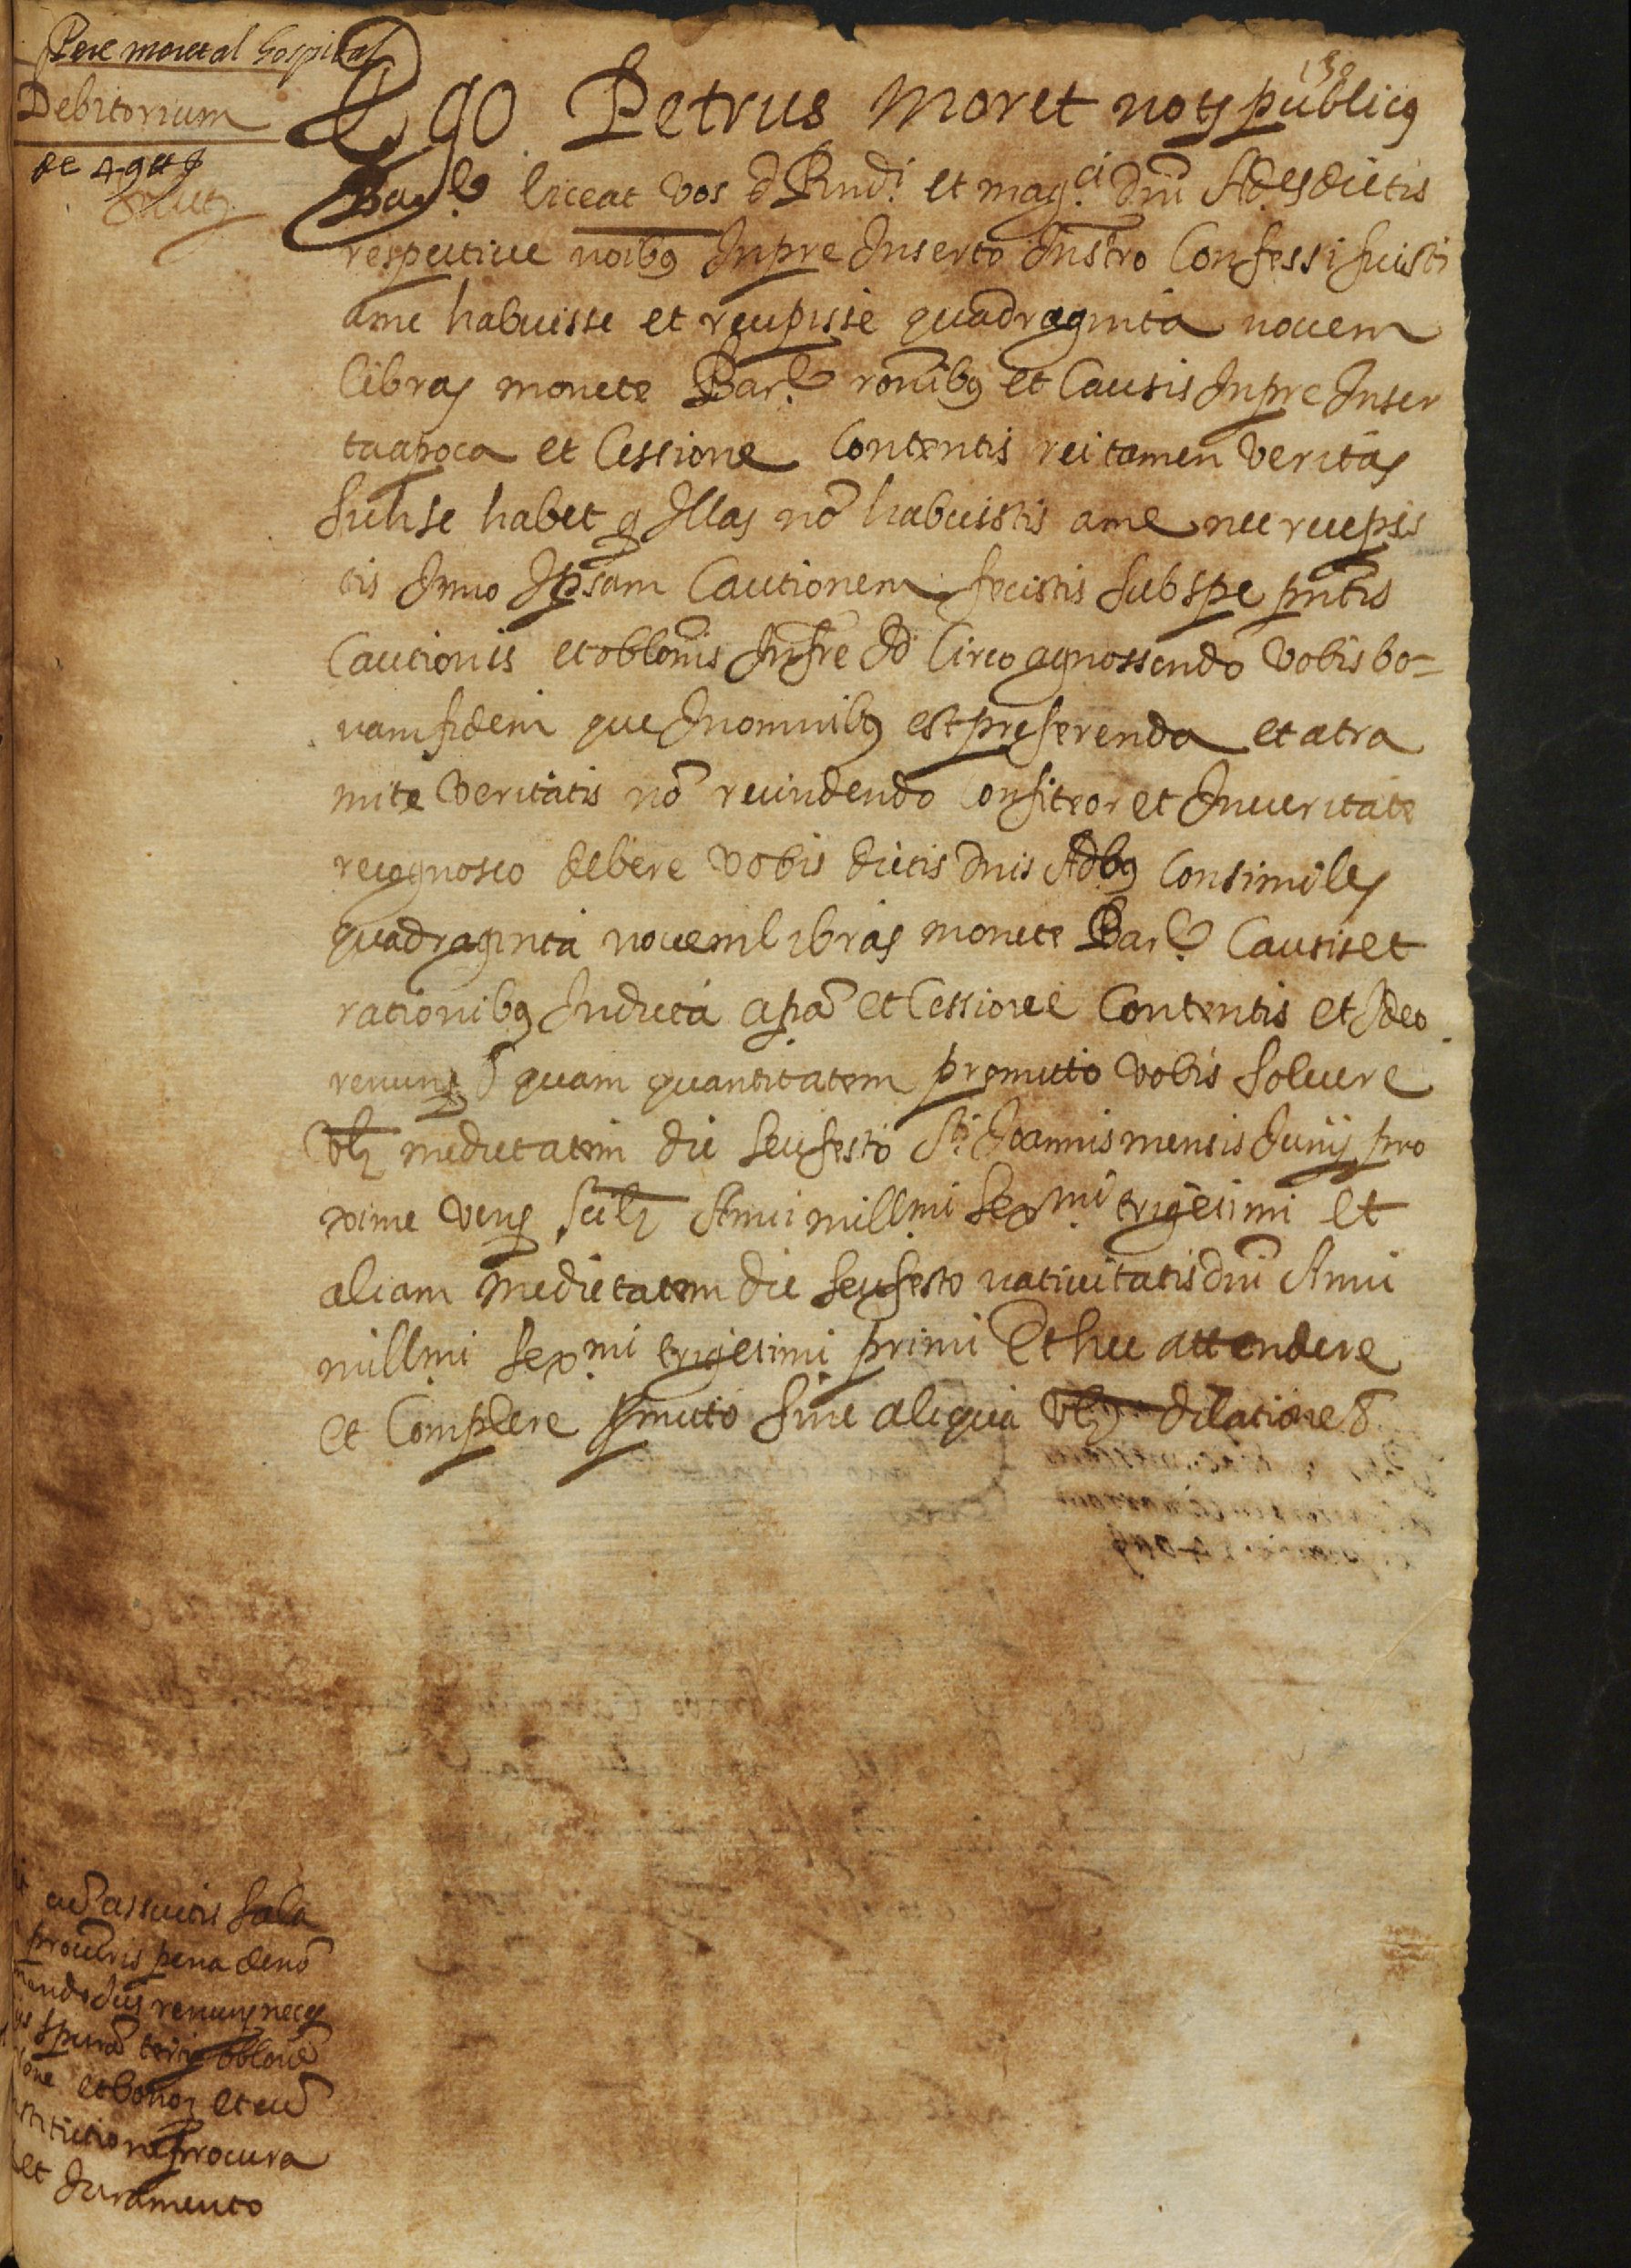 Pere moret al hospital
Debitorium
de 49 ll ß
138
Ego Petrus Moret notꝰ publicꝰ
Barne liceat vos d Rndi et magci Dni Ad.es dictis
respective noibꝰ In pre Inserto Instro Confessi fuisti
a me habuisse et recepisse quadraginta novem
libras monete Barne ronibꝰ et Causis In pre Inser
ta apoca et Cessione Contentis rei tamen veritas
sich se habet q Illas no habuistis a me nec recepis
tis Immo Ipsam Cautionem fecistis sub spe pntis
Cautionis et oblonis Infre Id Circo agnossendo vobis bo=
nam fidem que In omnibꝰ est preferenda et a tra
mite veritatis no recindendo Confiteor et In veritate
recognosco debere vobis dictis Dnis Adbꝰ Consimiles
quadraginta novem libras monete Barne Causis et
rationibꝰ In dicta apa et Cessione Contentis et Ideo
renun quam quantitatem promitto vobis solvere
vlz medietatem die seu festo Sti Joannis mensis Junij pro
xime ven scilz Anni millmi sexmi trigesimi et
aliam medietatem die seu festo nativitatis Dni Anni
millmi sexmi trigesimi primi Et hec attendere
et Complere pmitto sine aliqua vlz dilatione &
cu assuetis sala
procuris pena deno
renun
et bonoꝝ et cu
procura
et Juramento